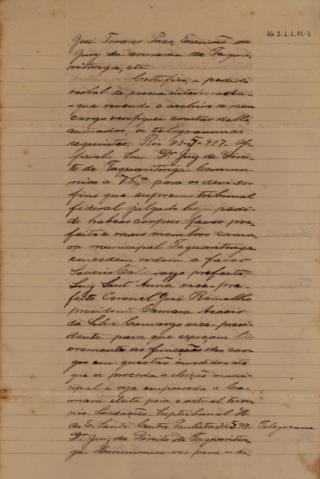 José Tavares Paes, Escrivão do
Jury da comarca de Taqua-
ritinga, etc.
Certifico, a pedido
verbal de pessoa interessada
que revendo o archivo a meu
cargo verifiquei constar delle
os telegrammas
seguintes: Rio 23-5-917. Of-
ficial. Snr. Dr. Juiz de Direi-
to de Taquaritinga. Commu-
nico a V. Sa. para os devidos
fins que supremo tribunal
federal julgado hoje pedi-
do habeas corpus favor pre-
feito e mais membros cama-
ra municipal Taquaritinga
concedem ordem a favor
prefeito
Luiz Sant'Anna vice-pre-
feito Coronel José Ramalho
presidente Camara
da Silva Camargo vice-presi-
dente para que exerçam li-
vremente as funcções dos car-
gos em questão
que se proceda a eleição muni-
cipal e seja empossada a Ca-
mara eleita para o actual trien-
nio. Saudações. Suptribunal H.
do E. Santo. Telegramma
Dr. Juiz de Direito de Taquaritin-
ga. Communico vos para o de-